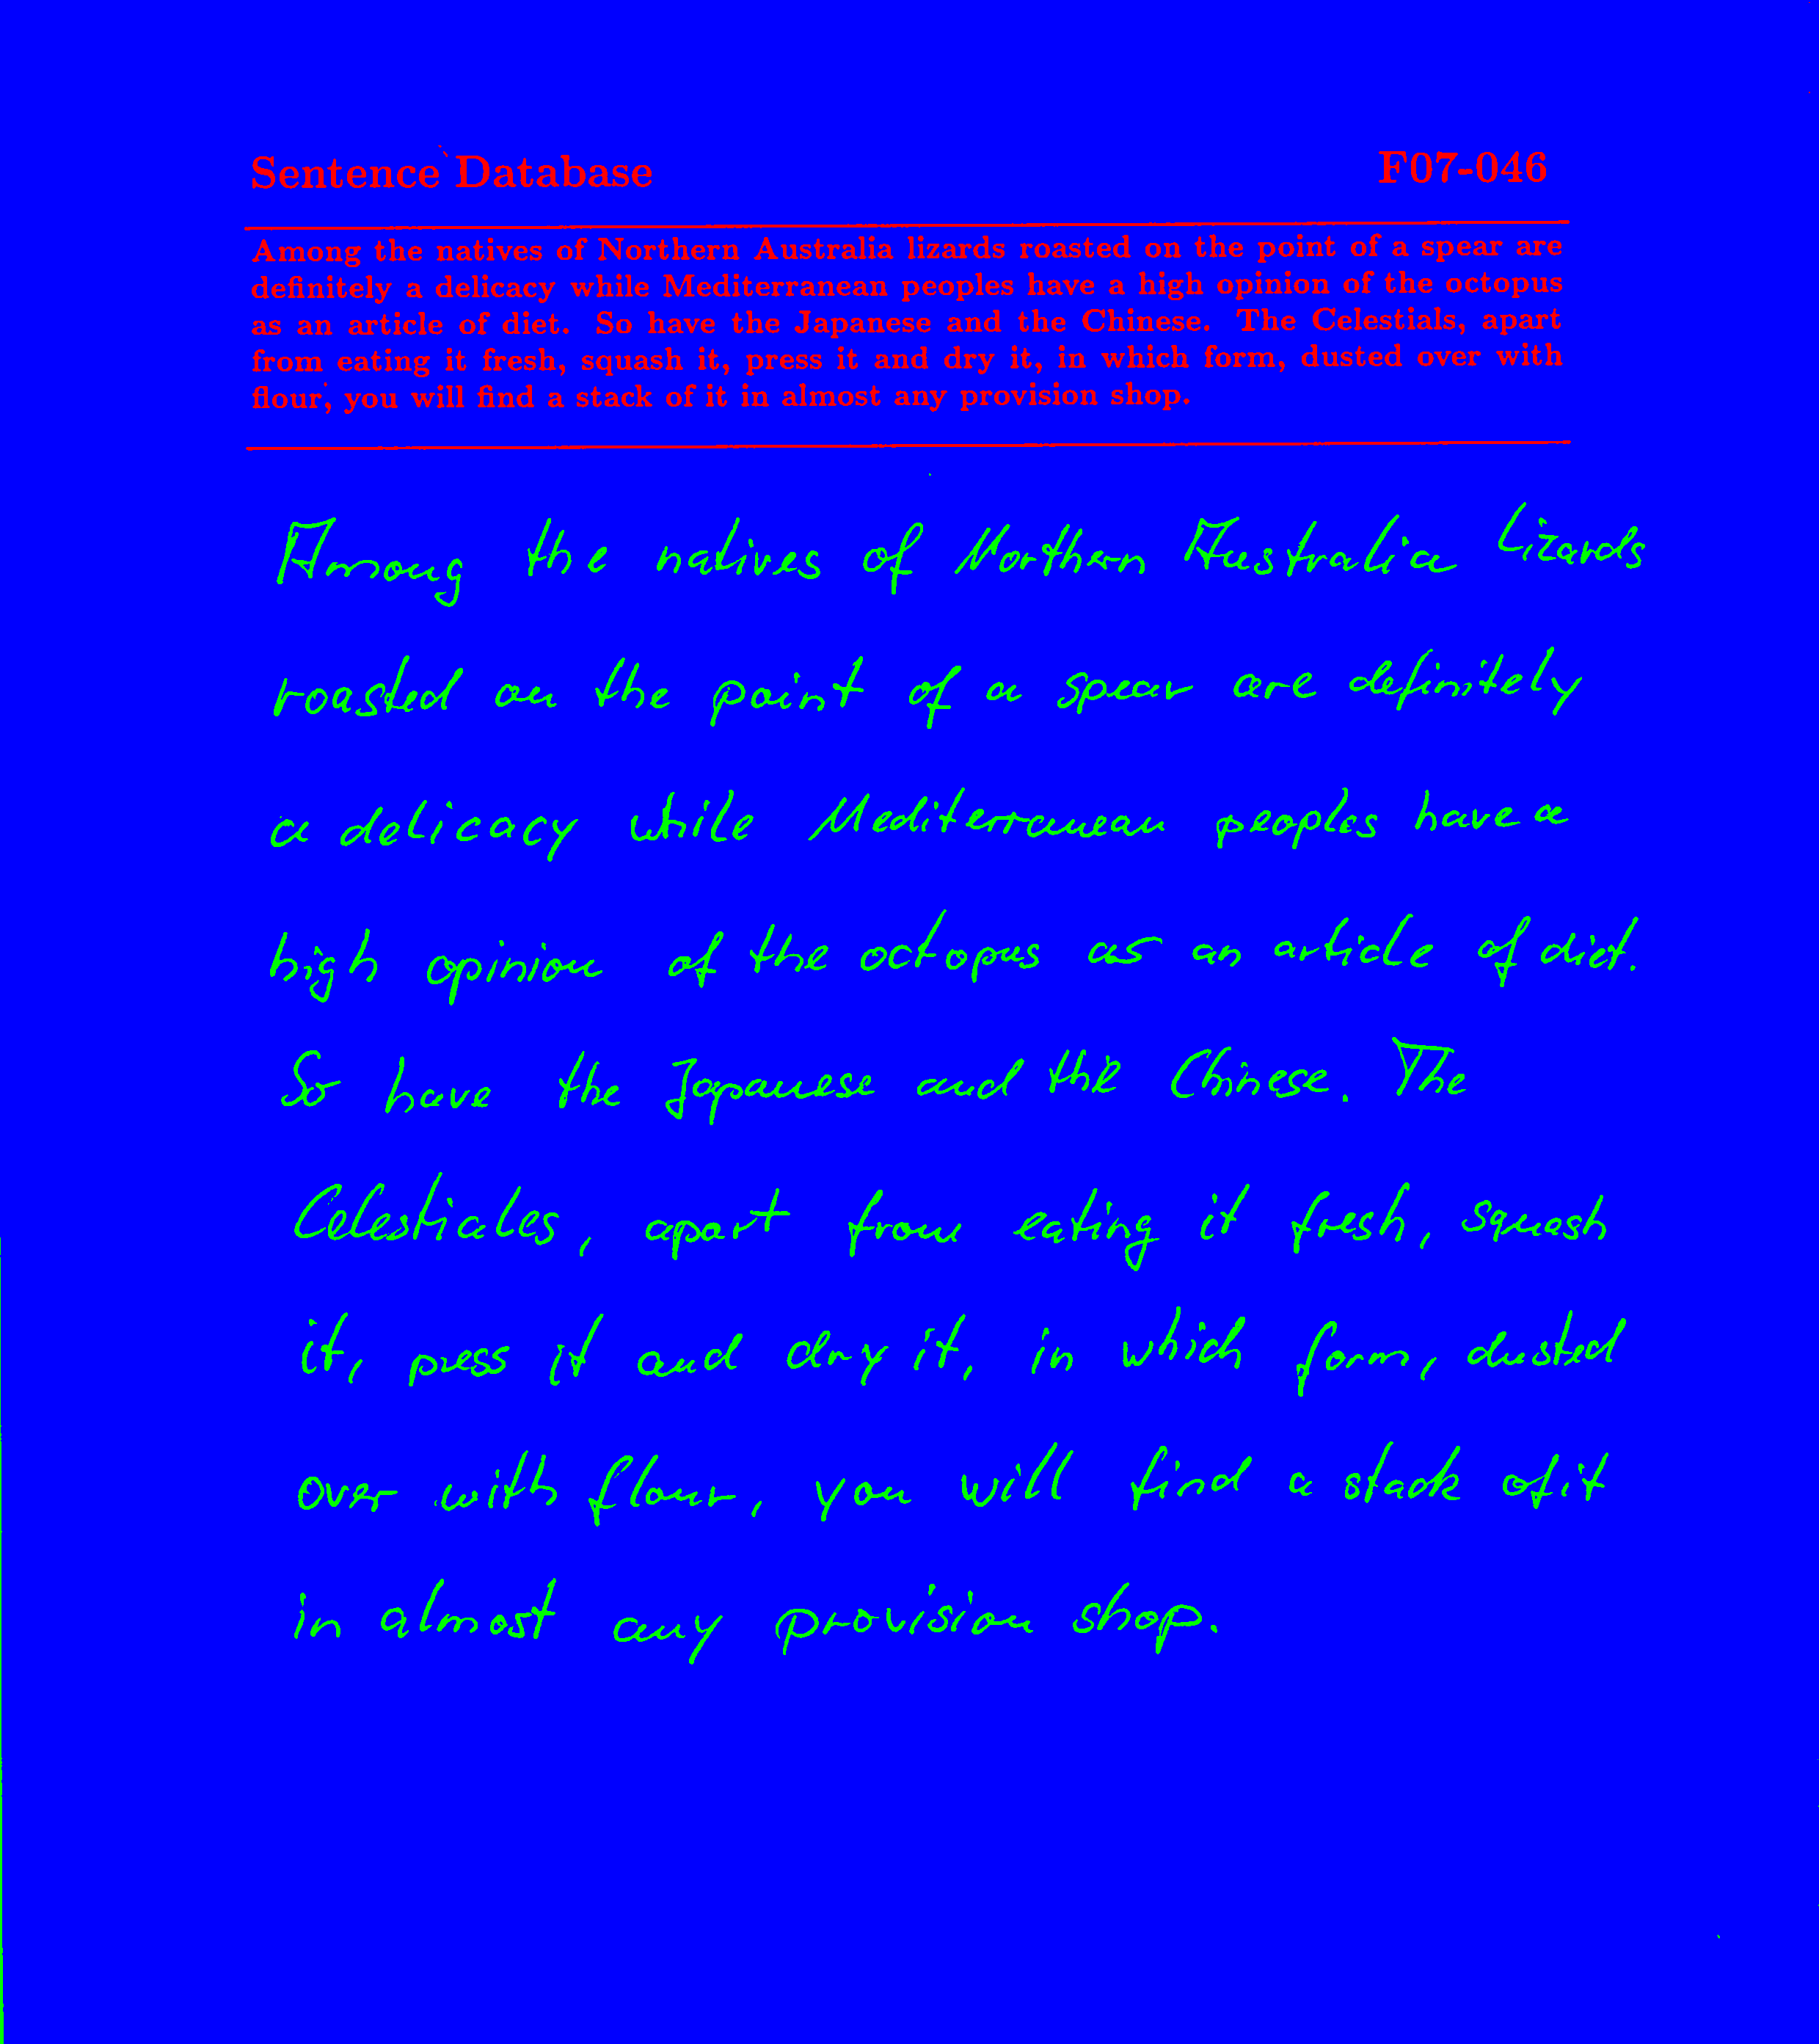 Sentence Database F07-046
Among the natives of Northern Australia lizards roasted on the point of a spear are
definitely a delicacy while Mediterranean peoples have a high opinion of the octopus
as an article of diet. So have the Japanese and the Chinese. The Celestials, apart
from eating it fresh, squash it, press it and dry it, in which form, dusted over with
flour, you will find a stack of it in almost any provision shop.
Among the natives of Northern Australia Lizards
roasted on the point of a spear are definitely
a delicacy while Mediterranean peoples have a
high opinion of the octopus as an article of diet.
So have the Japanese and the Chinese. The
Celestiales, apart from eating it fresh, squash
it, press it and dry it, in which form, dusted
over with flour, you will find a stack of it
in almost any provision shop.